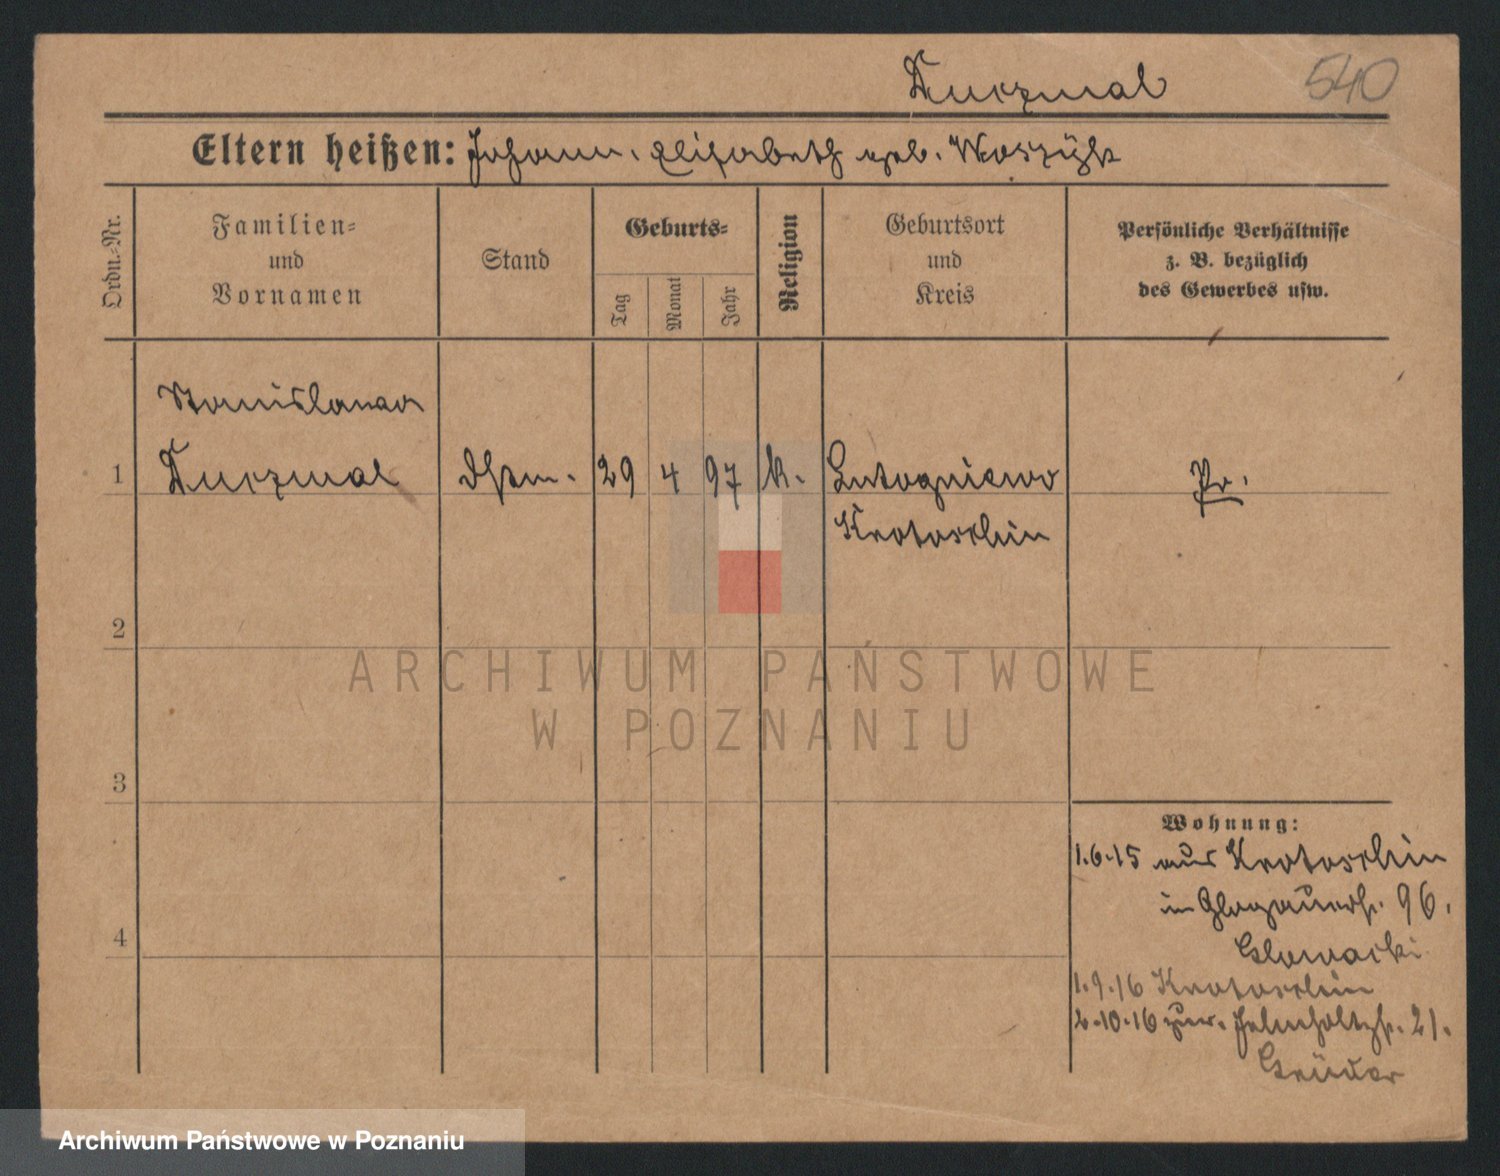 Kuczmal 540
Eltern heißen: Johann. Elisabeth geb.
Ordn.-Nr.
Familien-
und
Vornamen
Stand
Geburts-
Tag
Monat
Jahr
Religion
Geburtsort
und
Kreis
Persönliche Verhältnisse
z. B. bezüglich
des Gewerbes usw.
Stanislawa
1 Kuczmal 29 4 97 k. Lutogniewo Pr.
Krotoschin
2
3
4
Wohnung:
1.6.15 aus Krotoschin
in Glogauerstr. 96.
Glowacki
1.9.16 Krotoschin
2.10.16 zur. Helmholtzstr. 21.
ARCHIWUM PAŃSTWOWE
W POZNANIU
Archiwum Państwowe w Poznaniu